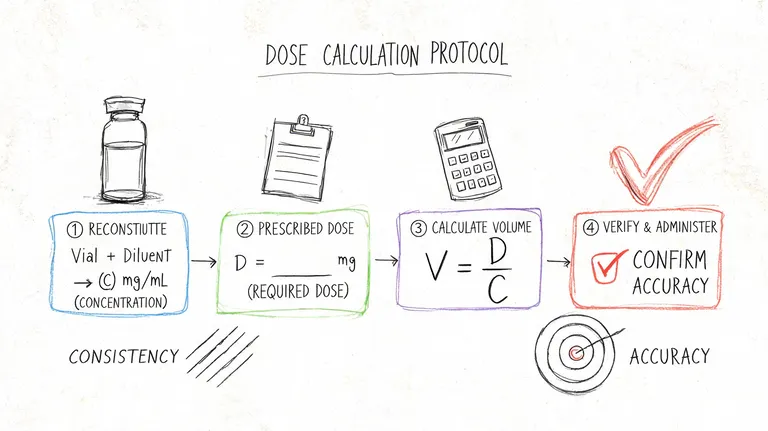 DOSE CALCULATION PROTOCOL
① RECONSTIUTTE
Vial + Diluent
→ (C) mg/mL
(CONCENTRATION)
② PRESCRIBED DOSE
D = ______ mg
(REQUIRED DOSE)
③ CALCULATE VOLUME
V = D/C
④ VERIFY & ADMINISTER
CONFIRM
ACCURACY
CONSISTENCY
ACCURACY